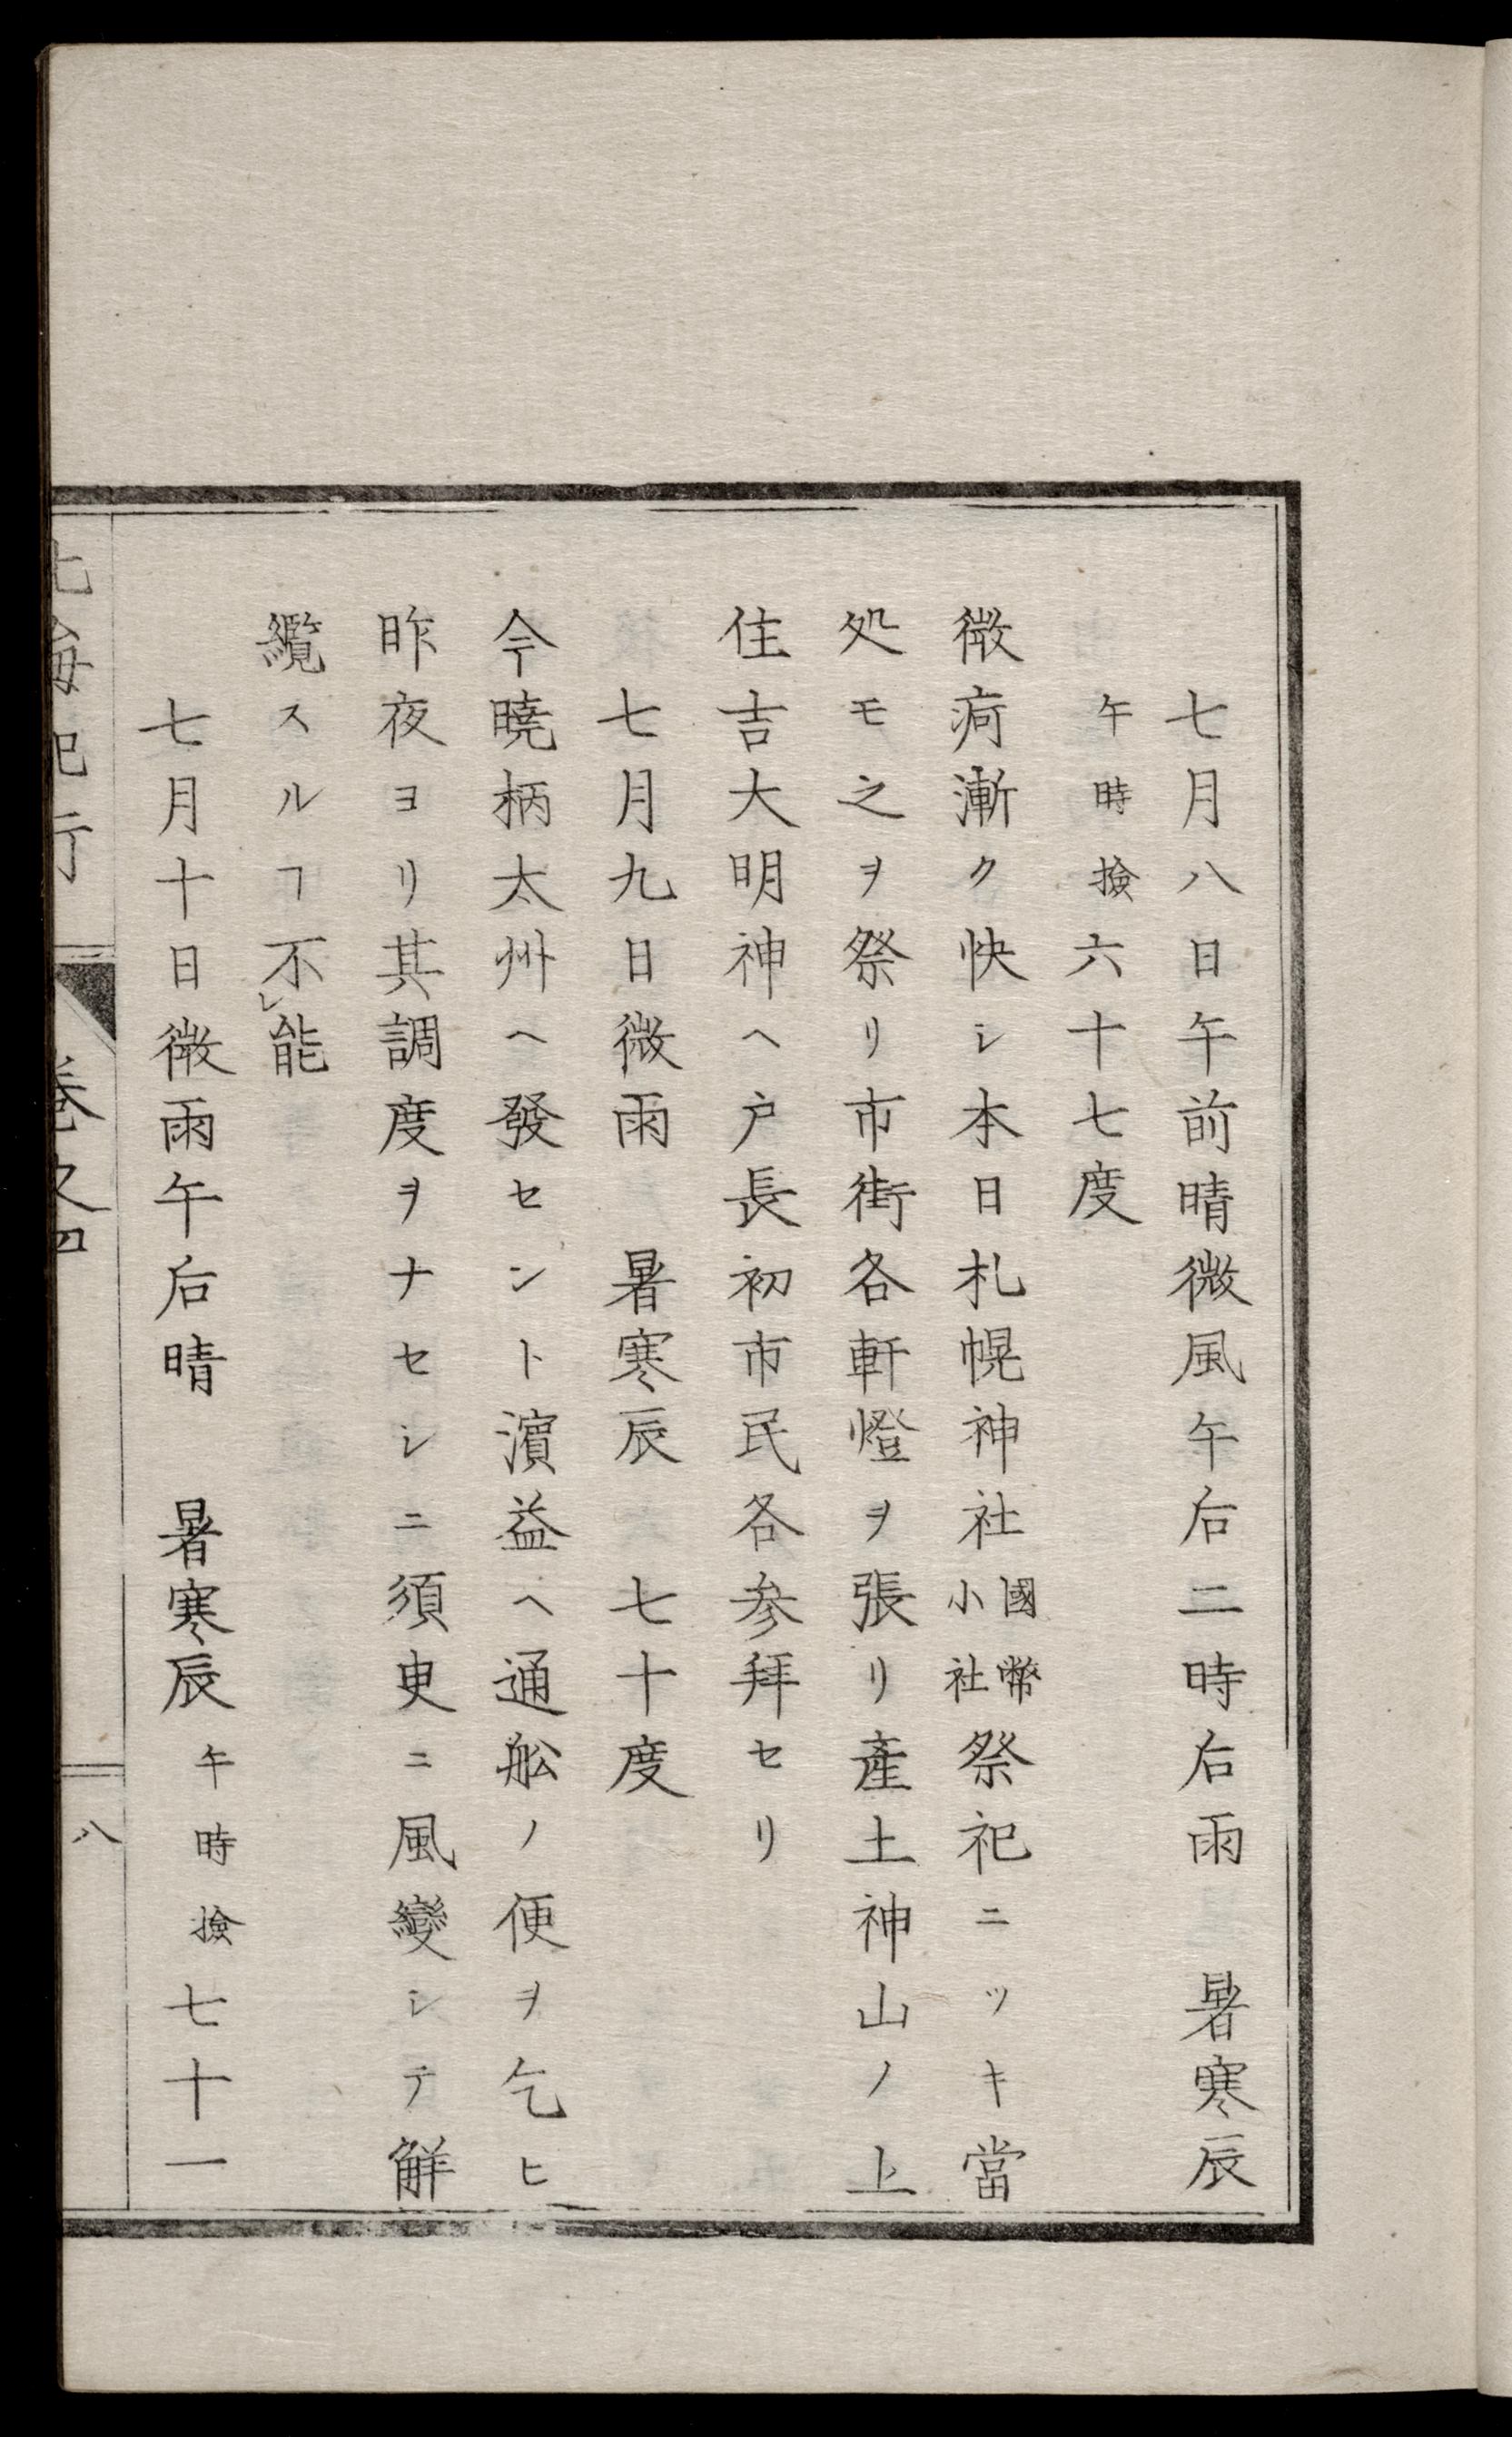 七月八日午前晴微風午后二時右雨　暑寒辰
午時撿六十七度
微痾漸ク快シ本日札幌神社國幣小社祭祀ニツキ當
処モ之ヲ祭リ市街各軒燈ヲ張リ產土神山ノ上
住吉大明神ヘ户長初市民各参拜セリ
七月九日微雨　暑寒辰　七十度
今曉柄太州ヘ發セント濵益ヘ通舩ノ便ヲ乞ヒ
昨夜ヨリ其調度ヲナセシニ須臾ニ風變シテ解
纜スルヿ不レ能
七月十日微雨午后晴　暑寒辰午時撿七十一
北海紀行　卷之四　八